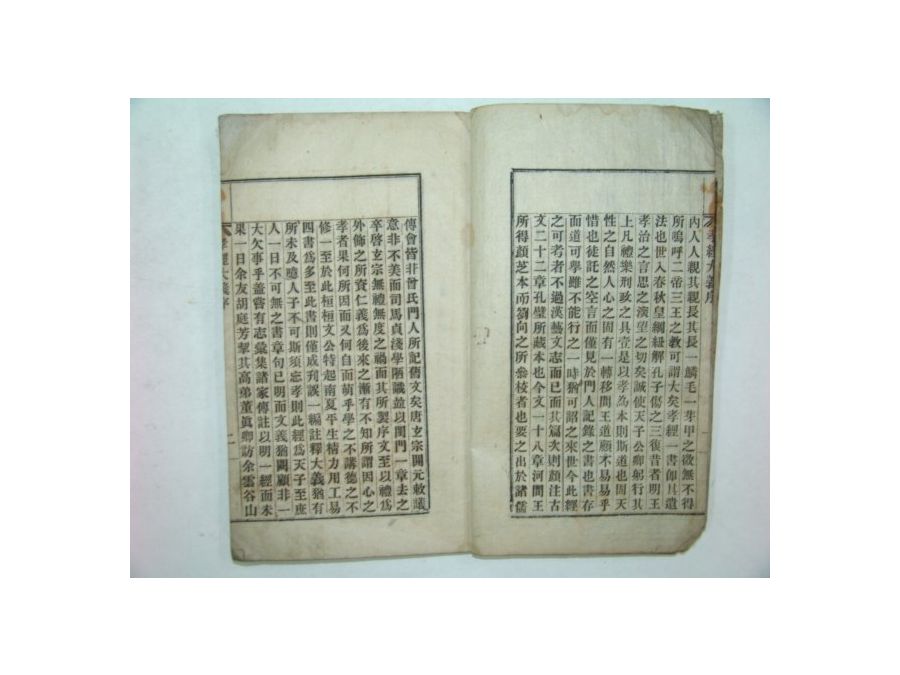 孝經大義序
內人人親其親長其長一麟毛一芽甲之欲無不得
所嗚呼二帝三王之教可謂大矣孝經一書卽其遺
法也世入春秋皇綱紐解孔子傷之三復昔者明王
孝治之言思之演望之切矣誠使天子公卿躬行其
上凡禮樂刑政之具壹是以孝為本則斯道也固天
性之自然人心之固有一轉移間王道顧不易易乎
惜也徒託之空言而僅見於門人記錄之書也書存
而道可學雖不能行之一時猶可詔之來世今此經
之可考者不過漢藝文志而已而其篇次則顏注古
文二十二章孔壁所藏本也今文一十八章河間王
所得顏芝本而劉向之所叅校者也要之出於諸儒
傅會皆非曾氏門人所記舊文矣唐玄宗開元敕議
意非不美而司馬貞淺學陋識並以閨門一章去之
卒啓玄宗無禮無度之禍而其所製序文至以禮為
外飾之所資仁義為後來之漸有不知所謂因心之
孝者果何所因而又何自而萌乎學之不講德之不
修一至於此桓桓文公特起南夏平生精力用工易
四書為多至此書則僅成刋誤一編註釋大義猶有
所未及噫人子不可斯須忘孝則此經為天子至庶
人一日不可無之書章句已明而文義猶闕顧非一
大欠事乎蓋嘗有志彙集諸家傳註以明一經而未
果一日余友胡庭芳挈其高弟董眞卿訪余雲谷山
孝經大義序
二